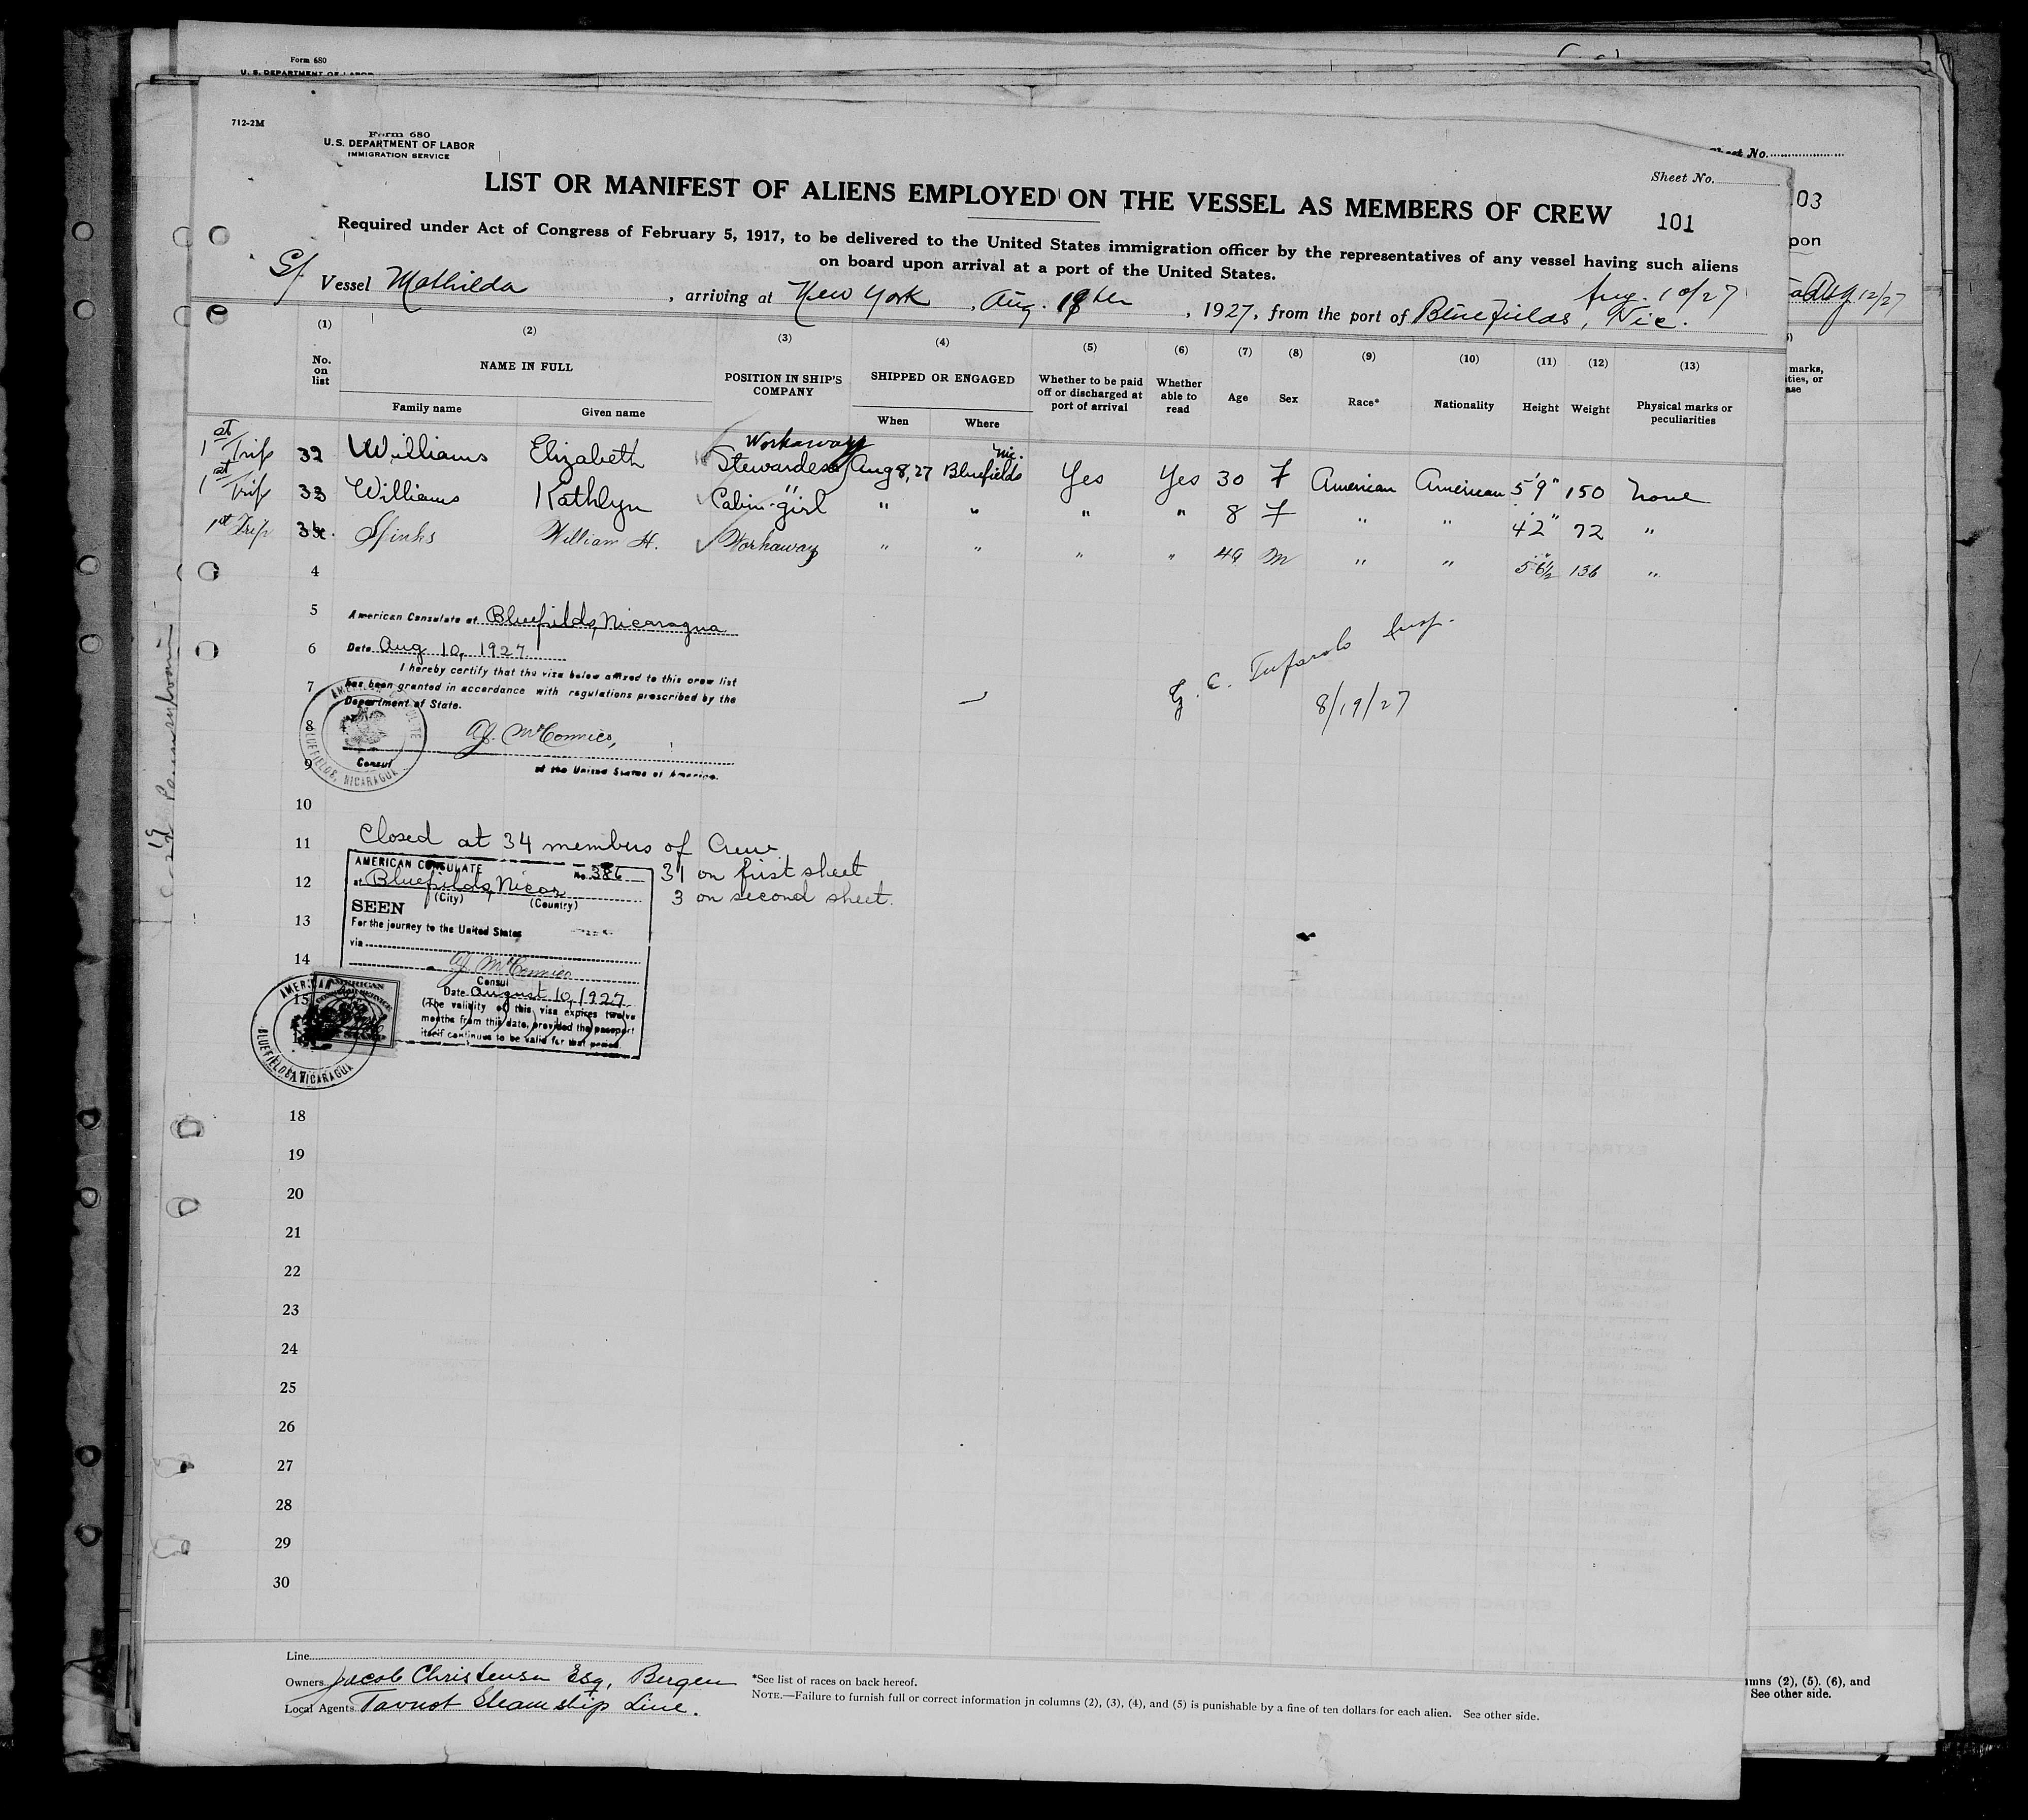 Form 680
U. S. DEPARTMENT OF LABOR
712-2M
Form 680
U.S. DEPARTMENT OF LABOR
IMMIGRATION SERVICE
Sheet No.
Sheet No.
LIST OR MANIFEST OF ALIENS EMPLOYED ON THE VESSEL AS MEMBERS OF CREW 101
03
Required under Act of Congress of February 5, 1917, to be delivered to the United States immigration officer by the representatives of any vessel having such aliens
pon
on board upon arrival at a port of the United States.
Aug. 10/27
S/ Vessel Mathilda, arriving at New York, Aug. 19th, 1927, from the port of Bluefields, Nic.
Aug 12/27
(1) (2) (3) (4) (5) (6) (7) (8) (9) (10) (11) (12) (13)
No. on list NAME IN FULL POSITION IN SHIP'S COMPANY SHIPPED OR ENGAGED Whether to be paid off or discharged at port of arrival Whether able to read Age Sex Race* Nationality Height Weight Physical marks or peculiarities
marks,
ities, or
ase
Family name Given name When Where
Workaway
1st Trip 32 Williams Elizabeth Stewardess Aug 8, 27 Bluefields Nic. Yes Yes 30 F American American 5'9" 150 none
1st Trip 33 Williams Kathlyn Cabin-girl " " " " 8 F " " 4'2" 72 "
1st Trip 34. William H. Workaway " " " " 49 M " " 5'6½" 136 "
4
5 American Consulate at Bluefields, Nicaragua
6 Date Aug 10, 1927
I hereby certify that the visa below affixed to this crew list
7 has been granted in accordance with regulations prescribed by the
Department of State.
8/19/27
8 A.J. McConnico,
9 Consul of the United States of America.
AMERICAN CONSULATE
BLUEFIELDS, NICARAGUA
10
11 Closed at 34 members of Crew
31 on first sheet
3 on second sheet.
AMERICAN CONSULATE No. 386
12 at Bluefields, Nicar
(City) (Country)
SEEN
13 For the journey to the United States
via
14 A.J. McConnico
Consul
15 Date August 10, 1927
(The validity of this visa expires twelve
months from this date, provided the passport
itself continues to be valid for that period.
AMERICAN
BLUEFIELDS, NICARAGUA
AMERICAN
CONSULAR SERVICE
17
18
19
20
21
22
23
24
25
26
27
28
29
30
Line
Owners Jacob Christensen Esq, Bergen
Local Agents Tavnot Steamship Line.
*See list of races on back hereof.
NOTE.—Failure to furnish full or correct information in columns (2), (3), (4), and (5) is punishable by a fine of ten dollars for each alien. See other side.
umns (2), (5). (6), and
See other side.